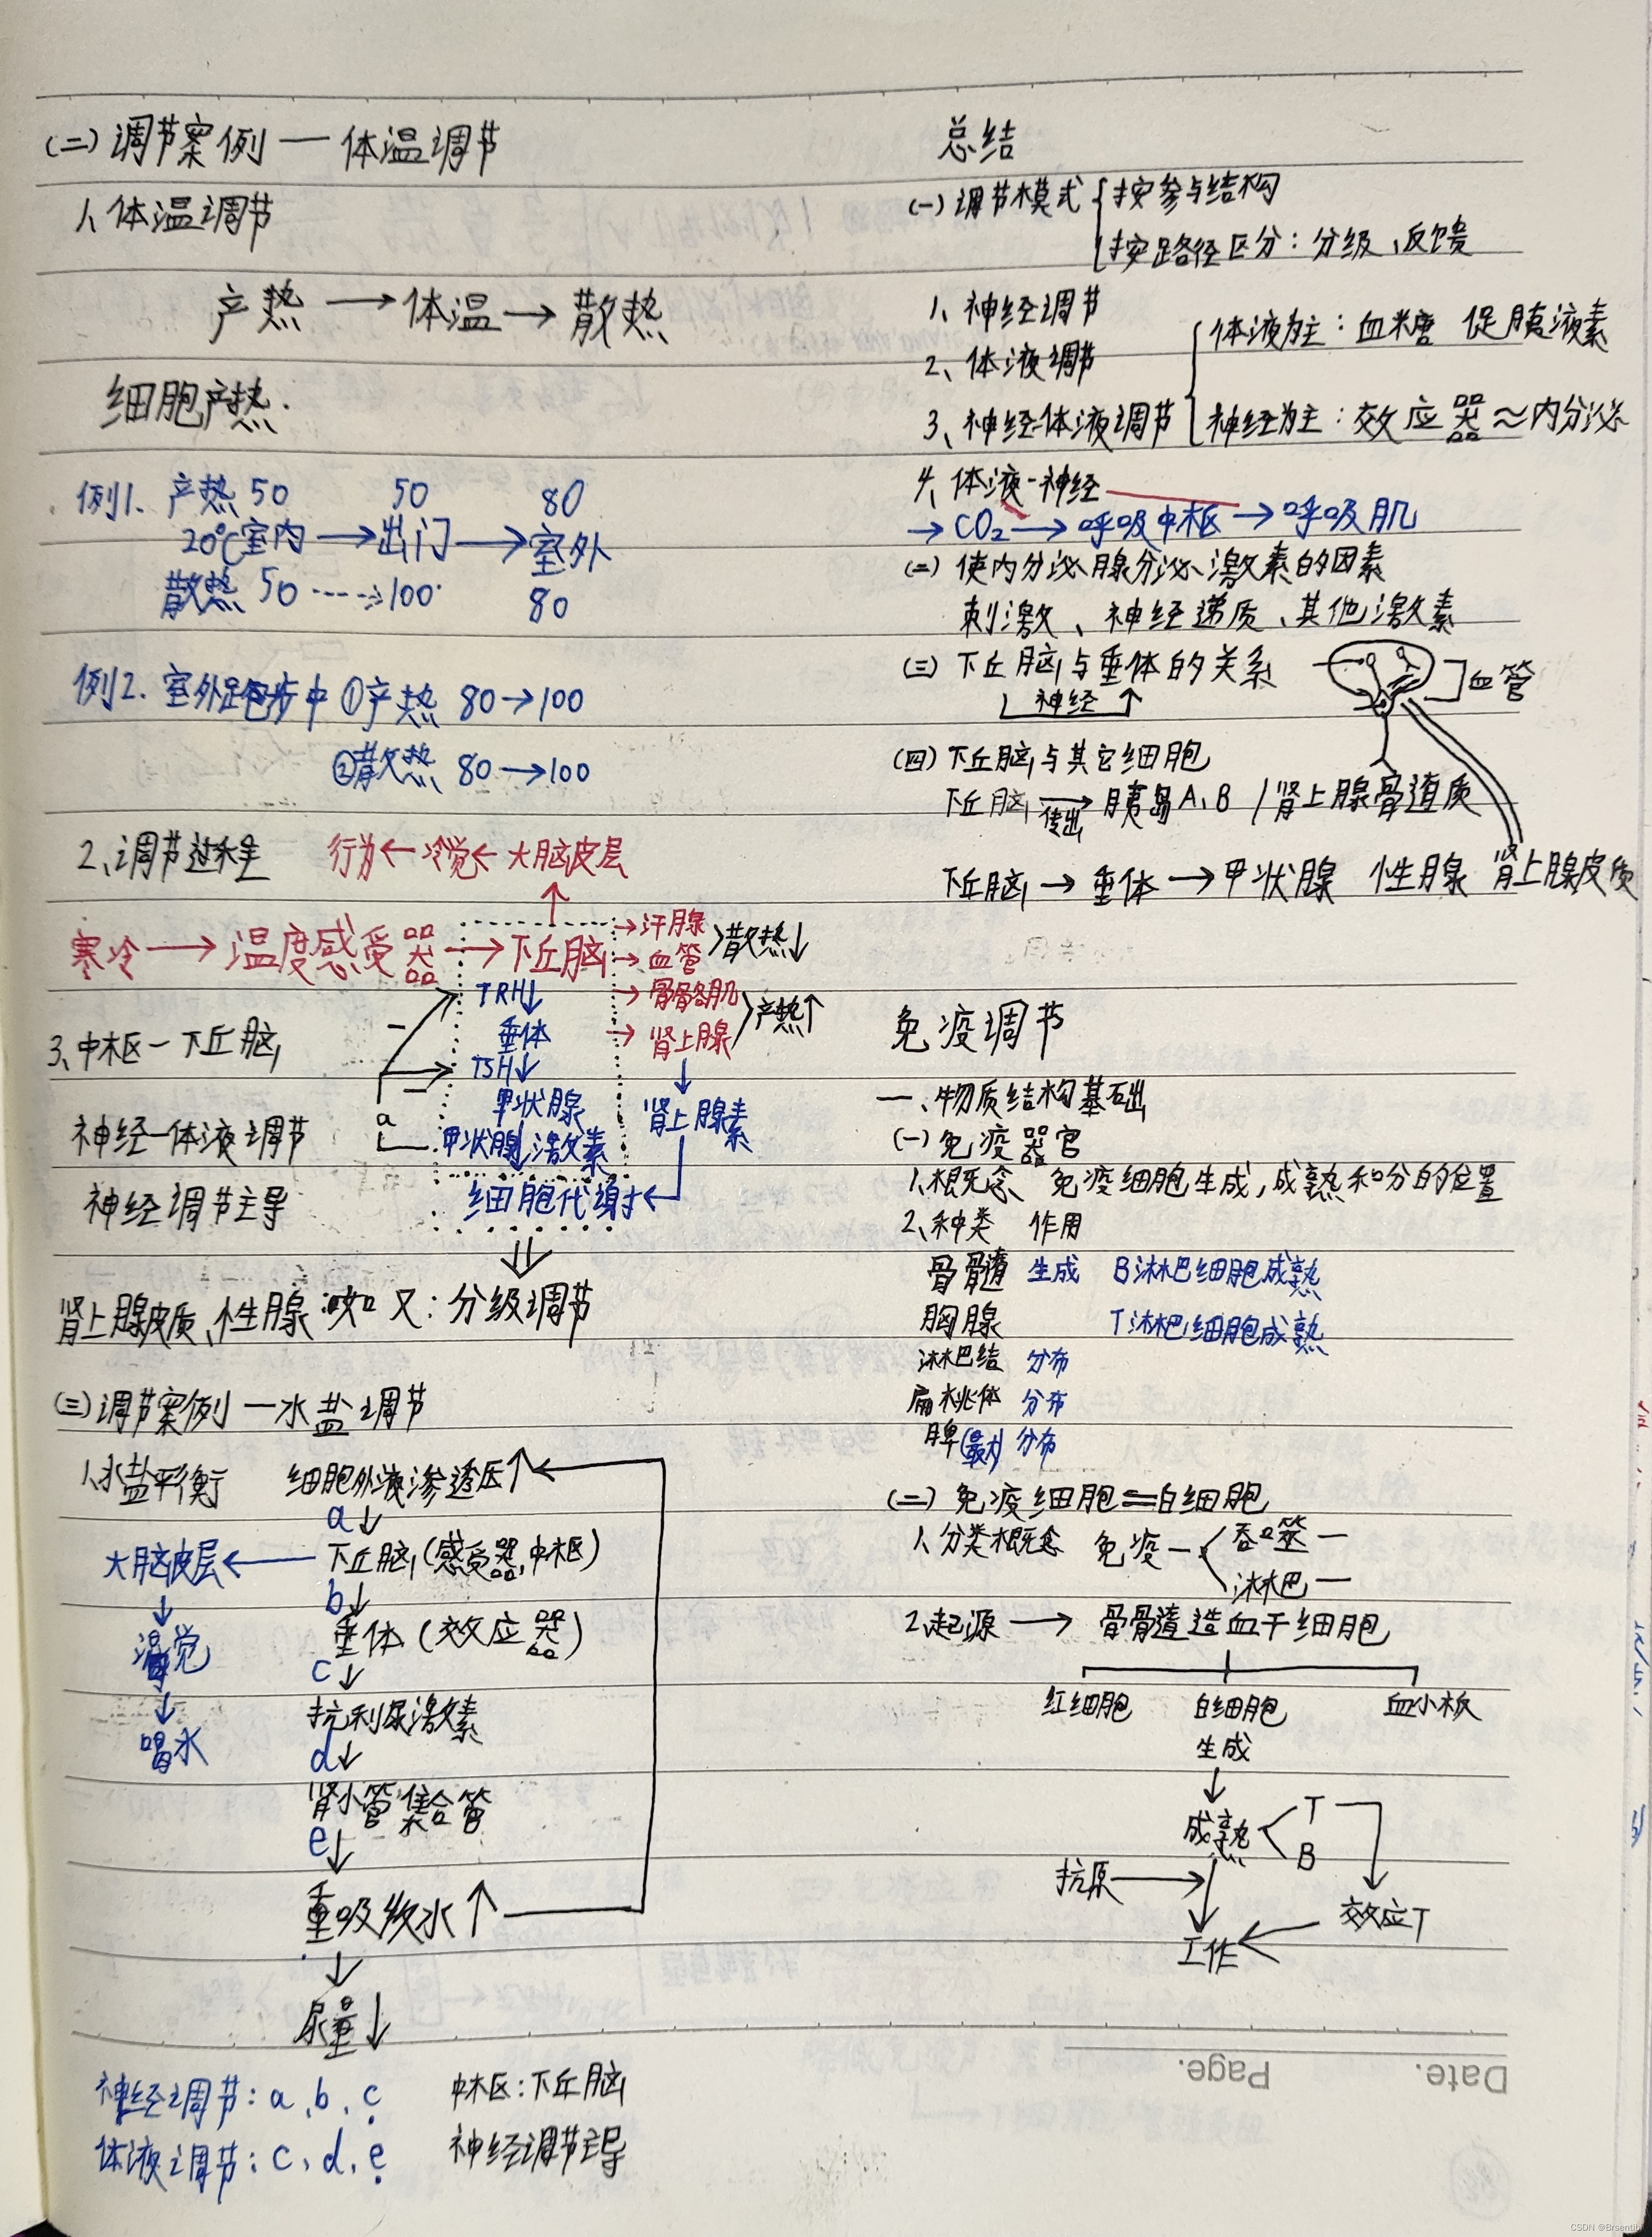 (二)调节案例—体温调节
1、体温调节
产热→体温→散热
细胞产热.
例1. 产热 50 50 80
20℃室内→出门→室外
散热 50 ---->100 80
例2. 室外跑步中 ①产热 80→100
②散热 80→100
2、调节过程 行为←冷觉←大脑皮层
↑
寒冷→温度感受器→下丘脑
→汗腺
→血管
>散热↓
→骨骼肌
→肾上腺
>产热↑
TRH↓
垂体
TSH↓
甲状腺
甲状腺激素
↓
肾上腺素
细胞代谢←
a
－
－
3、中枢－下丘脑
神经—体液调节
神经调节主导
⇓
肾上腺皮质、性腺 又:分级调节
(三)调节案例—水盐调节
1、水盐平衡 细胞外液渗透压↑←
a↓
大脑皮层← 下丘脑(感受器,中枢)
b↓
↓
渴觉 垂体(效应器)
c↓
↓
喝水 抗利尿激素
d↓
肾小管集合管
e↓
重吸收水↑
↓
尿量↓
神经调节:a、b、c 中枢:下丘脑
体液调节:c、d、e 神经调节主导
总结
(一)调节模式{按参与结构
按路径区分:分级、反馈
1、神经调节
2、体液调节
3、神经体液调节
{体液为主:血糖 促胰液素
神经为主:效应器≈内分泌
4、体液-神经
→CO₂→呼吸中枢→呼吸肌
(二)使内分泌腺分泌激素的因素
刺激、神经递质、其他激素
(三)下丘脑与垂体的关系
神经↑
血管
(四)下丘脑与其它细胞
下丘脑→胰岛A、B/肾上腺骨道质
传出
下丘脑→垂体→甲状腺 性腺 肾上腺皮质
免疫调节
一、物质结构基础
(一)免疫器官
1、概念 免疫细胞生成,成熟和分的位置
2、种类 作用
骨髓 生成 B淋巴细胞成熟
胸腺 T淋巴细胞成熟
淋巴结 分布
扁桃体 分布
脾(最大) 分布
(二)免疫细胞＝白细胞
1、分类概念 免疫—<吞噬—
淋巴—
2、起源→骨髓造血干细胞
红细胞 白细胞 血小板
生成
↓
成熟<T
B
抗原→
↓
效应T
工作←
Date. Page.
CSDN @Brsentibi